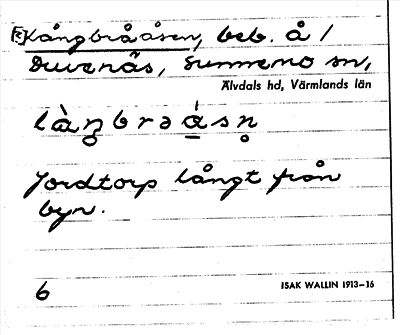 Långbrååsen, beb. å /
Duvenäs, Sunnemo sn,
Älvdals hd, Värmlands län
Jordtorp långt från
byn.
6
ISAK WALLIN 1913–16